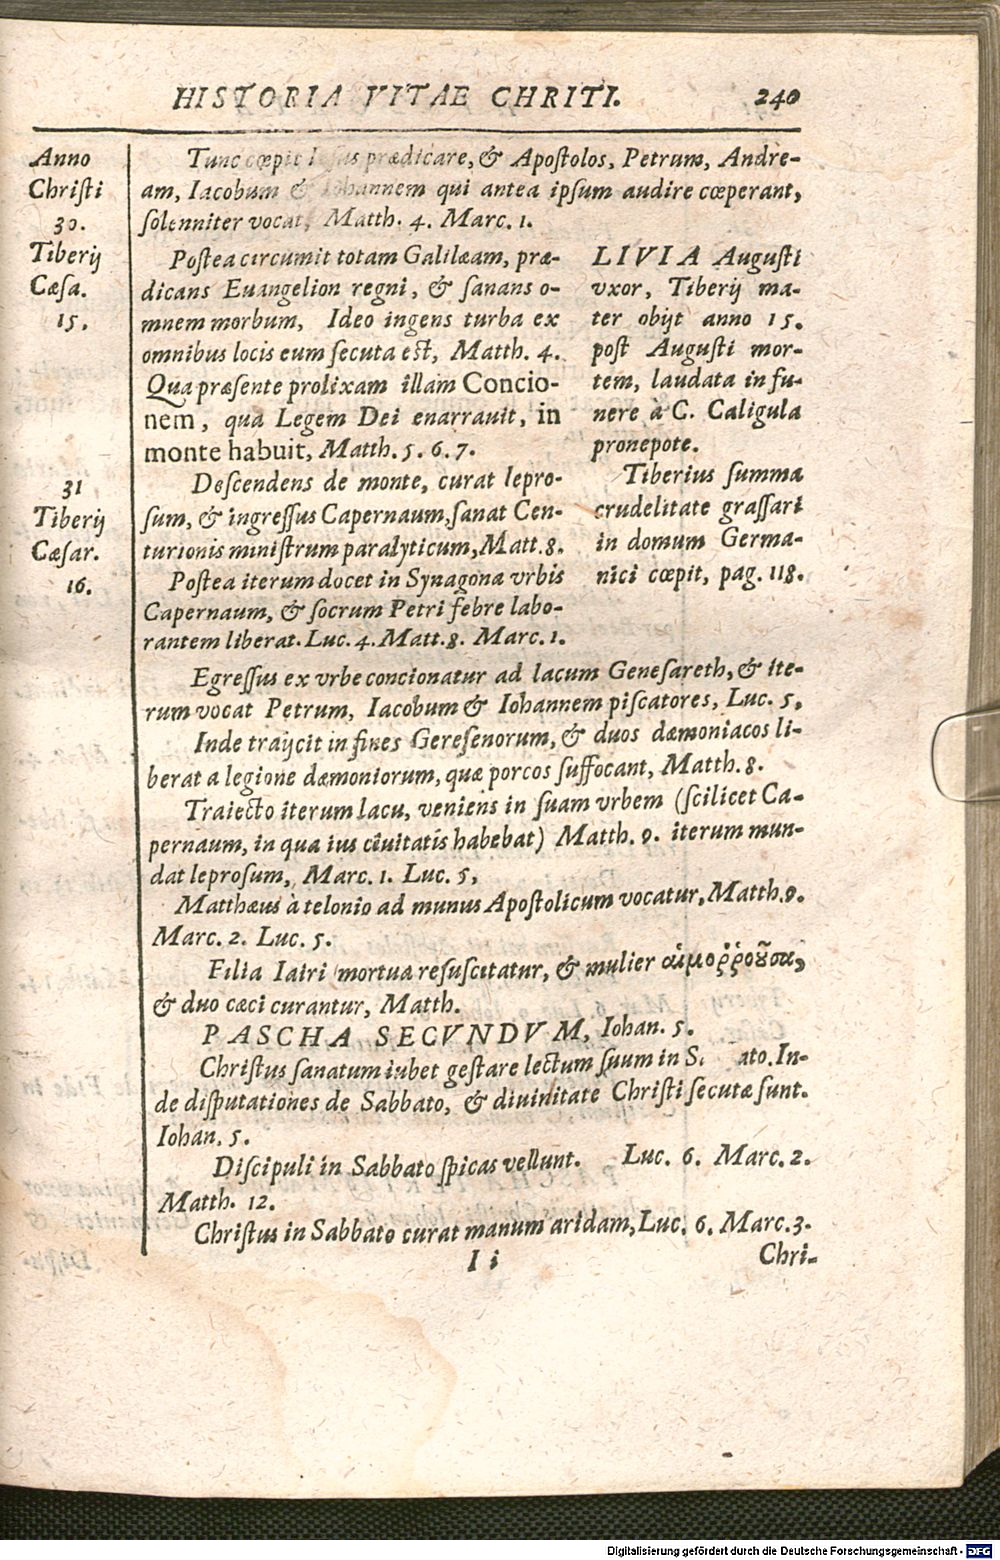 HISTORIA VITAE CHRITI. 240
Anno
Christi
30.
Tiberij
Cæsa.
15.
31
Tiberij
Cæsar.
16.
Tunc cœpit Iesus prædicare, & Apostolos, Petrum, Andre-
am, Iacobum & Iohannem qui antea ipsum audire cœperant,
solenniter vocat, Matth. 4. Marc. 1.
Postea circumit totam Galilæam, præ-
dicans Euangelion regni, & sanans o-
mnem morbum, Ideo ingens turba ex
omnibus locis eum secuta est, Matth. 4.
Qua præsente prolixam illam Concio-
nem, qua Legem Dei enarrauit, in
monte habuit, Matth. 5. 6. 7.
Descendens de monte, curat lepro-
sum, & ingressus Capernaum, sanat Cen-
turionis ministrum paralyticum, Matt. 8.
Postea iterum docet in Synagona vrbis
Capernaum, & socrum Petri febre labo-
rantem liberat. Luc. 4. Matt. 8. Marc. 1.
LIVIA Augusti
vxor, Tiberij ma-
ter obijt anno 15.
post Augusti mor-
tem, laudata in fu-
nere à C. Caligula
pronepote.
Tiberius summa
crudelitate grassari
in domum Germa-
nici cœpit, pag. 118.
Egressus ex vrbe concionatur ad lacum Genesareth, & ite-
rum vocat Petrum, Iacobum & Iohannem piscatores, Luc. 5,
Inde traijcit in fines Geresenorum, & duos dæmoniacos li-
berat a legione dæmoniorum, quæ porcos suffocant, Matth. 8.
Traiecto iterum lacu, veniens in suam vrbem (scilicet Ca-
pernaum, in qua ius ciuitatis habebat) Matth. 9. iterum mun-
dat leprosum, Marc. 1. Luc. 5,
Matthæus à telonio ad munus Apostolicum vocatur, Matth. 9.
Marc. 2. Luc. 5.
Filia Iairi mortua resuscitatur, & mulier αἱμοῤῥοῦσα,
& duo cæci curantur, Matth.
PASCHA SECVNDVM, Iohan. 5.
Christus sanatum iubet gestare lectum suum in S. ato. In-
de disputationes de Sabbato, & diuinitate Christi secutæ sunt.
Iohan. 5.
Discipuli in Sabbato spicas vellunt. Luc. 6. Marc. 2.
Matth. 12.
Christus in Sabbato curat manum aridam, Luc. 6. Marc. 3.
I i Chri-
Digitalisierung gefördert durch die Deutsche Forschungsgemeinschaft - DFG